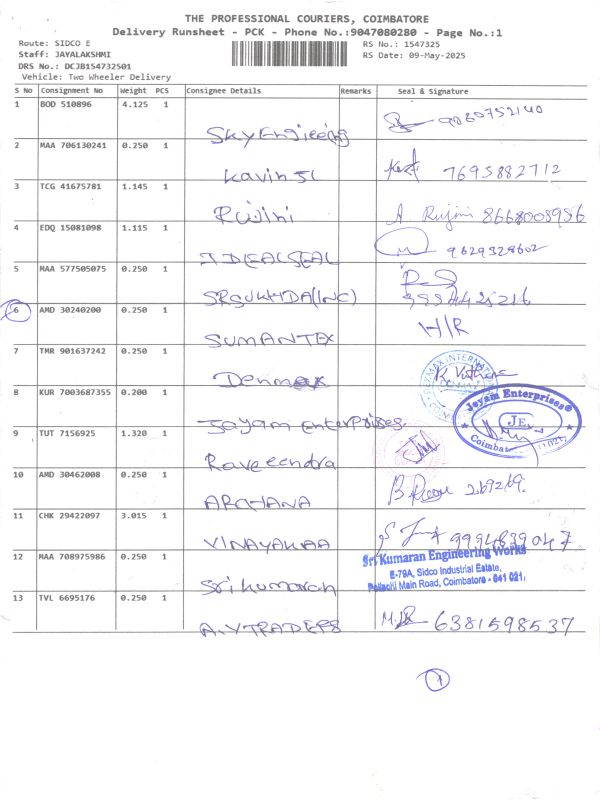 THE PROFESSIONAL COURIERS, COIMBATORE
Delivery Runsheet - PCK - Phone No.:9047080280 - Page No.:1
Route: SIDCO E
RS No.: 1547325
Staff: JAYALAKSHMI
RS Date: 09-May-2025
DRS No.: DCJB154732501
Vehicle: Two Wheeler Delivery
S No Consignment No Weight PCS Consignee Details Remarks Seal & Signature
1 BOD 510896 4.125 1
2 MAA 706130241 0.250 1
Kavin 7695882712
3 TCG 41675781 1.145 1
Rujini A. Rujini 8668008956
4 EDQ 15081098 1.115 1
IDEALSEAL 9629328602
5 MAA 577505075 0.250 1
SRSUKHDA(INC)
6 AMD 30240200 0.250 1 H/R
SUMANTEX
7 TMR 901637242 0.250 1
Denmax
8 KUR 7003687355 0.200 1 Jeyam Enterprises®
JE
Coimbat 021.
Jayam Enterprises.
9 TUT 7156925 1.320 1
Raveendra
10 AMD 30462008 0.250 1
ARCHANA
11 CHK 29422097 3.015 1
VINAYAKAA
12 MAA 708975986 0.250 1 Sri Kumaran Engineering Works
E-79A, Sidco Industrial Estate,
Pollachi Main Road, Coimbatore - 641 021.
Srikumaran
13 TVL 6695176 0.250 1 6381598537
A.V TRADERS
1